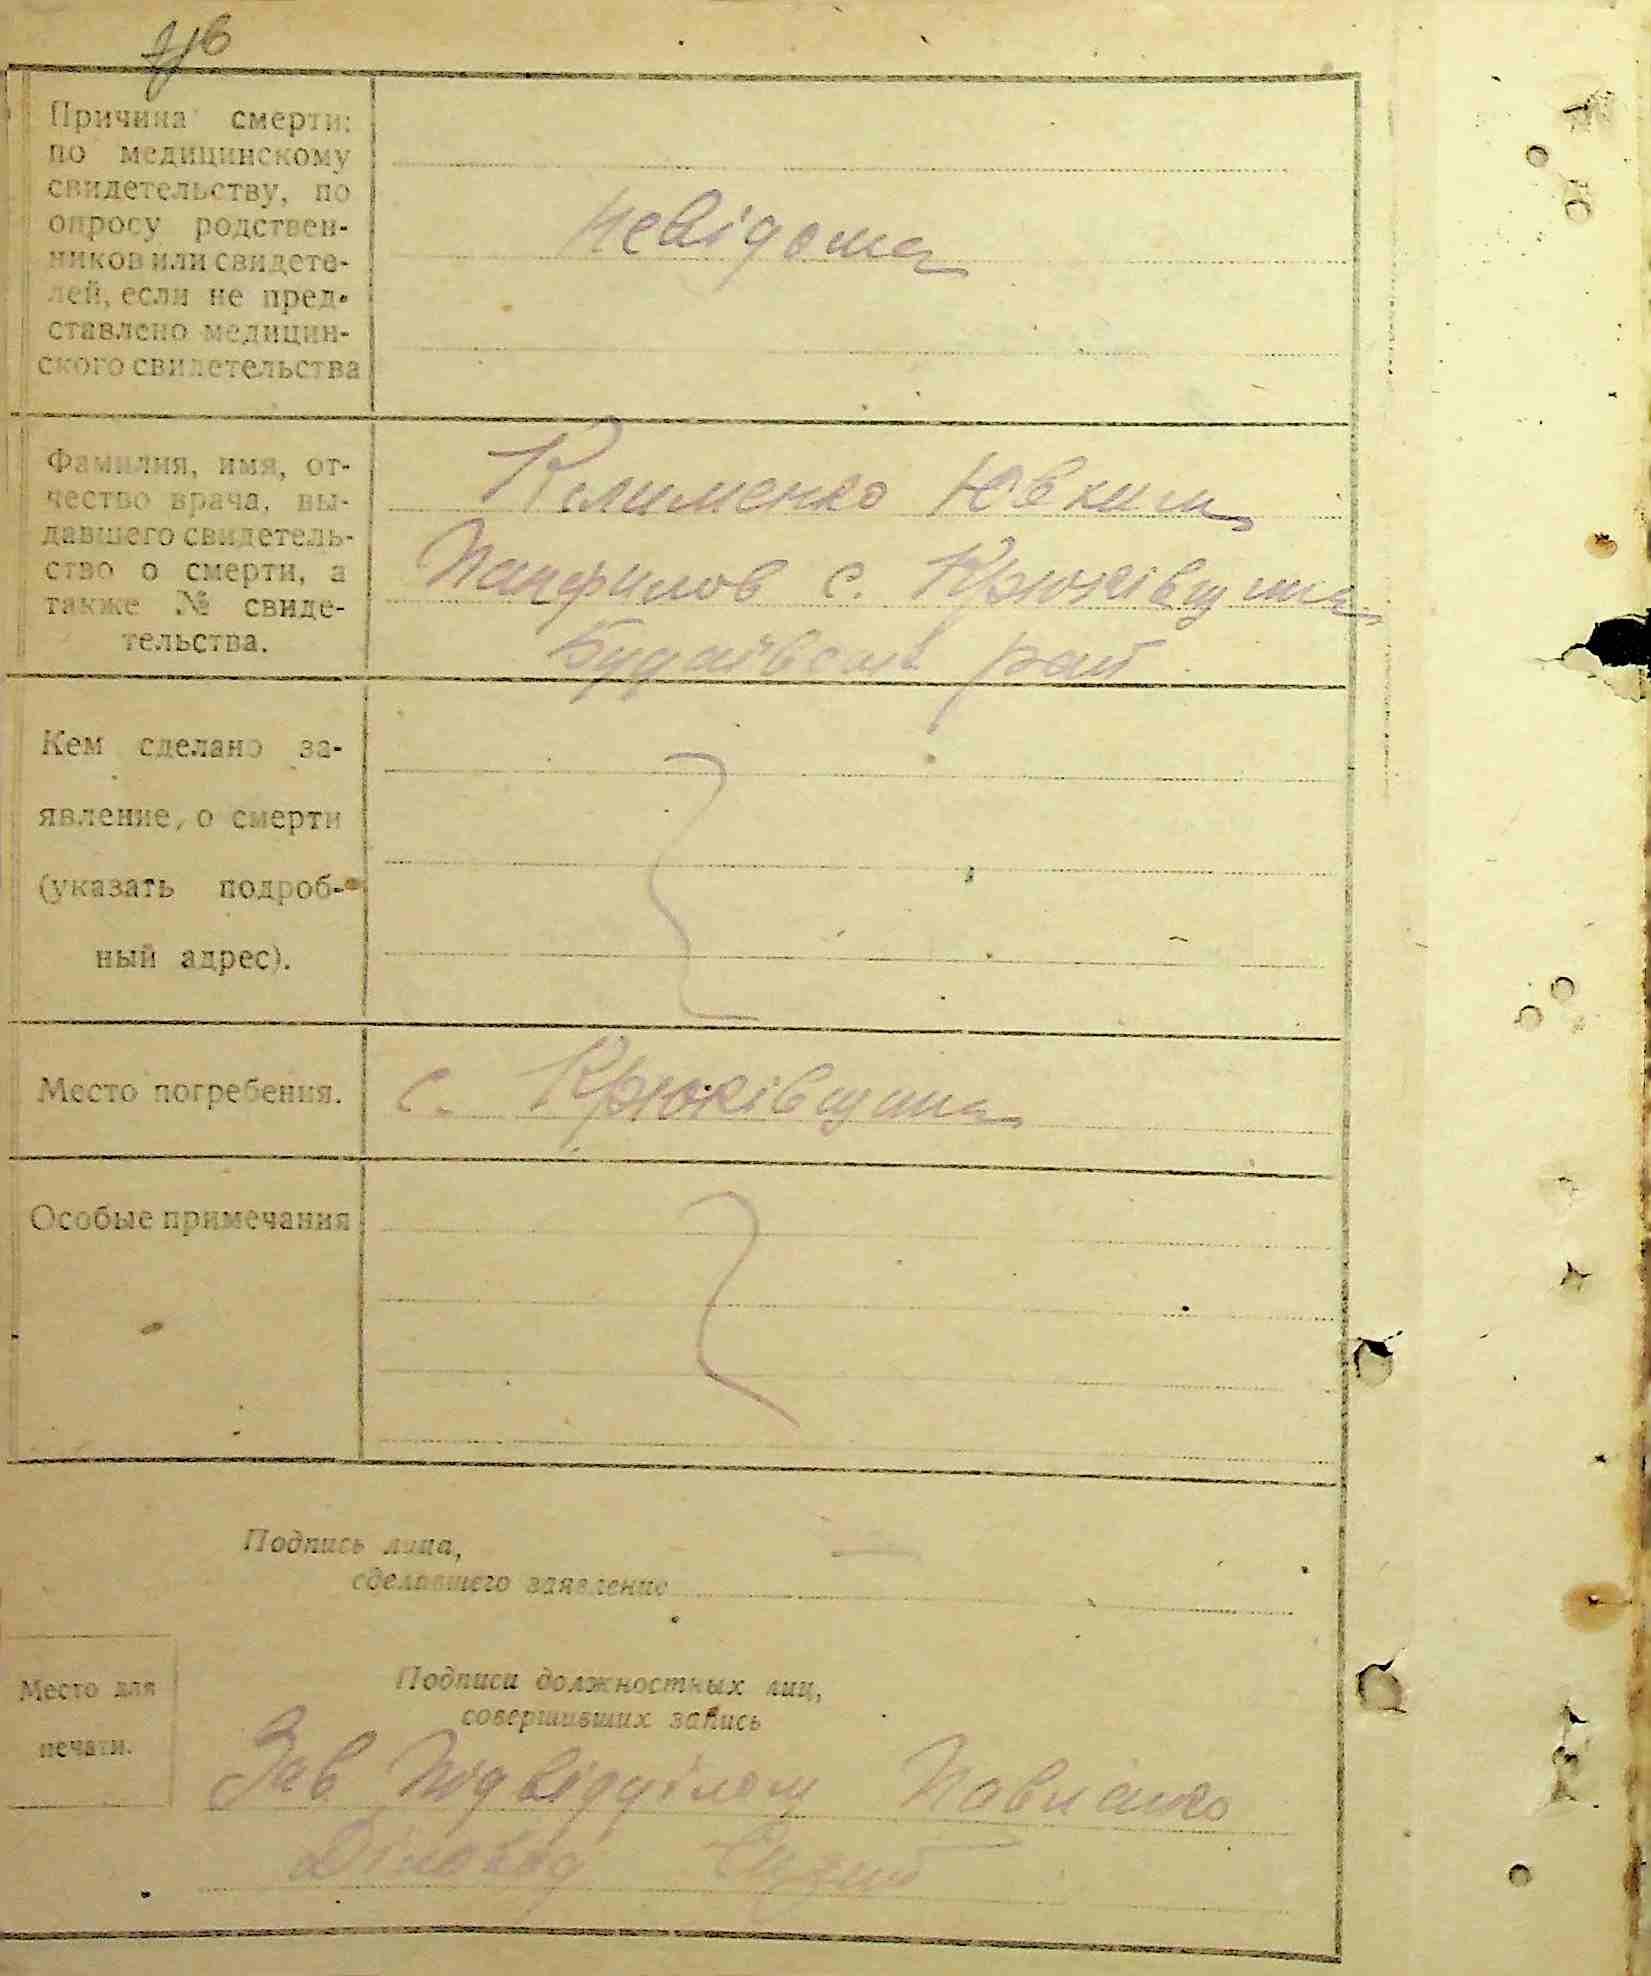 Причина смерти:
по медицинскому
свидетельству, по
опросу родствен-
ников или свидете-
лей, если не пред-
ставлено медицин-
ского свидетельства
невідома
Фамилия, имя, от-
чество врача, вы-
давшего свидетель-
ство о смерти, а
также № свиде-
тельства.
КлименкоЮвхим
Панфилов с. Крюківщина
Будаївськ рай
Кем сделано за-
явление, о смерти
(указать подроб-
ный адрес).
Место погребения.
с. Крюківщина
Особые примечания
Подпись лица,
сделавшего заявление
Место для
печати.
Подписи должностных лиц,
совершивших запись
Зав Підвідділом Павленко
Діловод